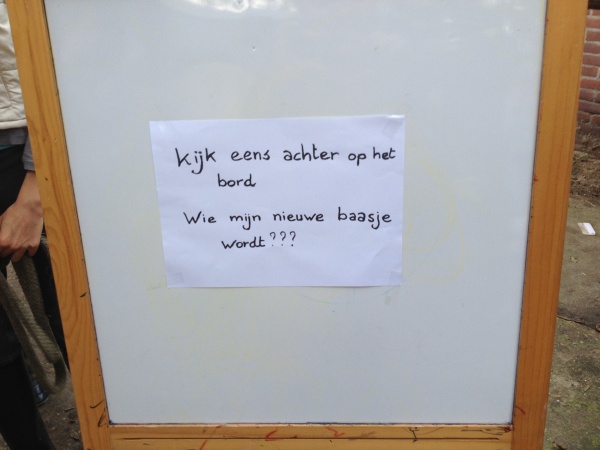 Kijk eens achter op het
bord
Wie mijn nieuwe baasje
wordt???